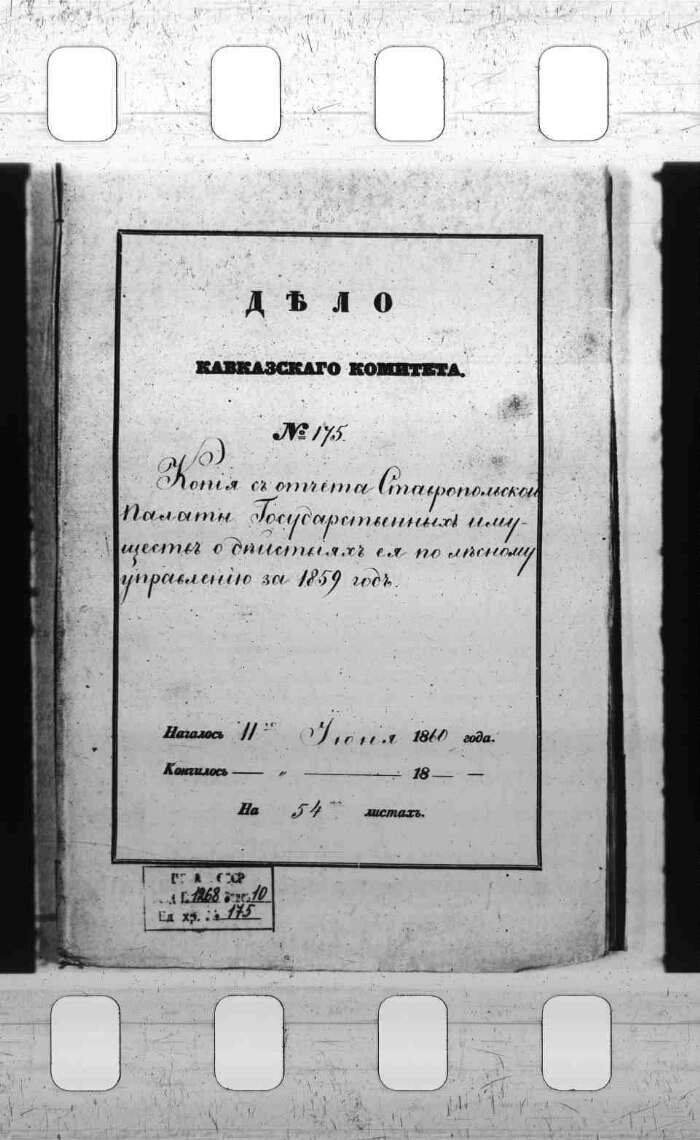 ДѢЛО
КАВКАЗСКАГО КОМИТЕТА.
№ 175.
Копія съ отчета Ставропольской
Палаты Государственныхъ иму-
ществъ о дѣйствіяхъ ея по лѣсному
управленію за 1859 годъ.
Началось 11го Іюня 1860 года.
Кончилось — „ — 18 — —
На 54 листахъ.
1268 10
Ед. хр. № 175